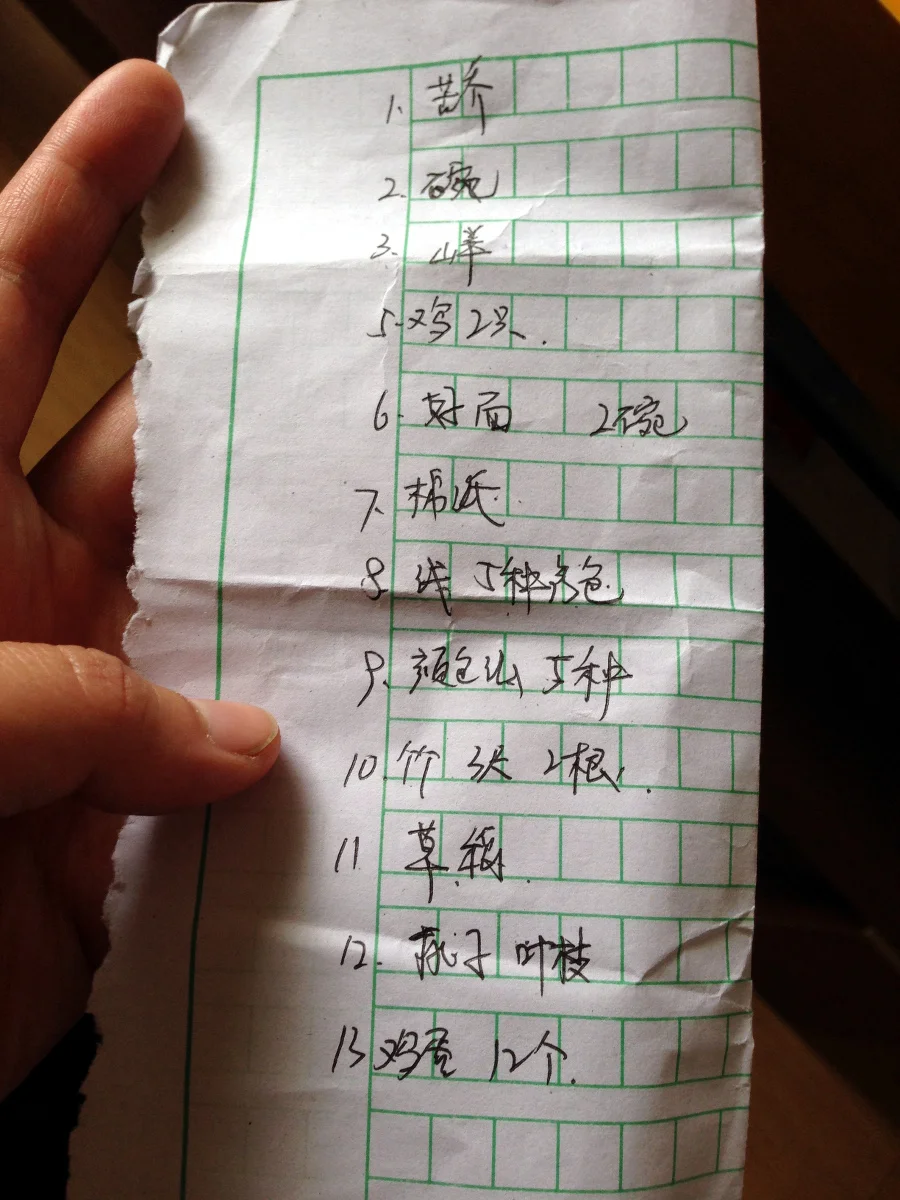 1、苦荞
2、碗
3、山羊
5、鸡2只.
6、好面 2碗
7、棉纸
8、线 5种颜色
9、颜色纸 5种
10、竹 3尺 2根.
11 草纸.
12、桃子 叶枝
13 鸡蛋 12个.